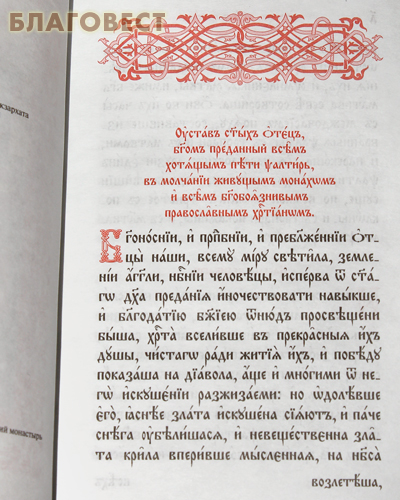 БЛАГОВЕСТ
кзархата
Оу҆ста́въ ст҃ы́хъ ѻ҆те́цъ,
бг҃омъ пре́данный всѣ̑мъ
хотѧ́щымъ пѣ́ти ѱалти́рь,
въ молча́нїи живу́щымъ мона́хѡмъ
и҆ всѣ̑мъ бг҃обоѧ́знивымъ
правосла́внымъ хрⷭ҇тїа́нѡмъ.
Бг҃оно́снїи, и҆ прпⷣбнїи, и҆ пребл҃же́ннїи ѻ҆т-
цы̀ на́ши, всемꙋ̀ мі́рꙋ свѣти̑ла, земле-
нїи а҆́гг҃ли, нбⷭ҇нїи человѣ́цы, и҆спе́рва ѿ ст҃а́-
гѡ дх҃а преда́нїѧ и҆́ночествовати навы́кше,
и҆ благода́тїю бж҃їею ѿню́дъ просвѣще́ни
бы́ша, хрⷭ҇та̀ всели́вше въ прекра̑сныѧ и҆́хъ
дꙋ́шы, чи́стагѡ ра́ди житїѧ̀ и҆́хъ, и҆ побѣ́дꙋ
показа́ша на дїа́вола, а҆́ще и҆ мно́гими ѿ не-
гѡ̀ и҆скꙋше́нїи разжиза́еми: но ѡ҆долѣ́вше
є҆го̀, ꙗ҆снѣ́е зла́та и҆скꙋше́на сїѧ́ютъ, и҆ па́че
снѣ́га ᲂу҆бѣли́шасѧ, и҆ невеще́ственна зла-
та̀ крила̀ впери́вше мы́сленнаѧ, на нб҃са̀
возлетѣ́ша,
ий монастырь